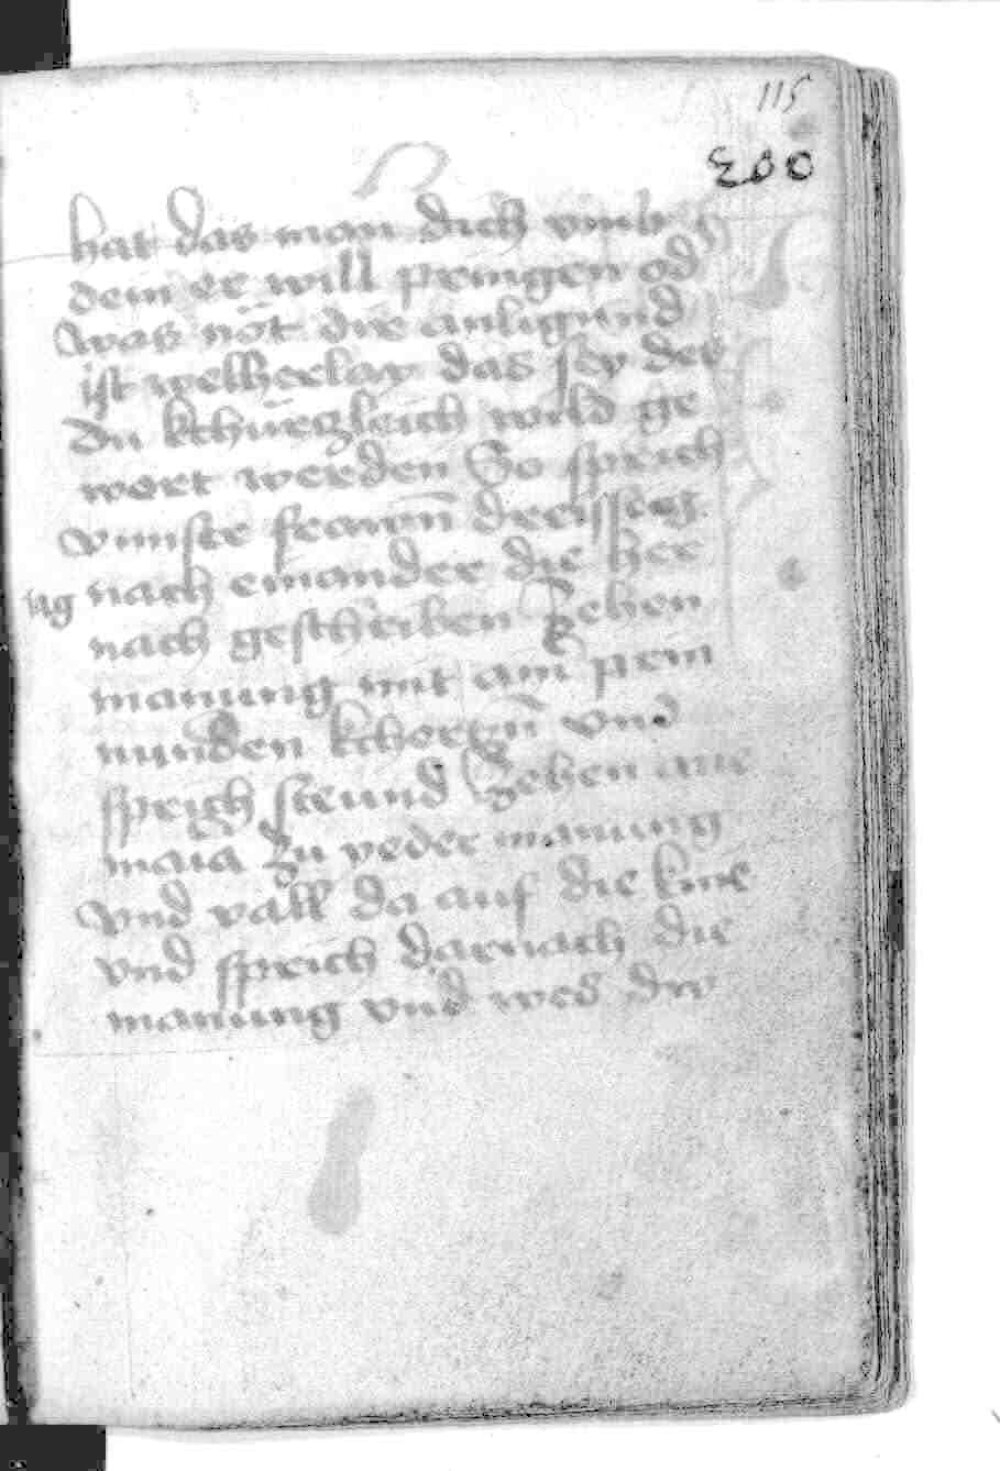 115
200
hat das man dich vmb
dem er will pringen od
was not dir anligund
ist welherlay das sey des
du kchürczleich wild ge
wert werden So sprich
vnnser frawn dreissig
tag nach einander die her
nach geschriben zehen
manung mit ain prin
nunden kcherczn vnd
sprich stund zehen aue
maria zu yeder manung
vnd vall da auf die knie
vnd sprich darnach die
manung vnd wes dw